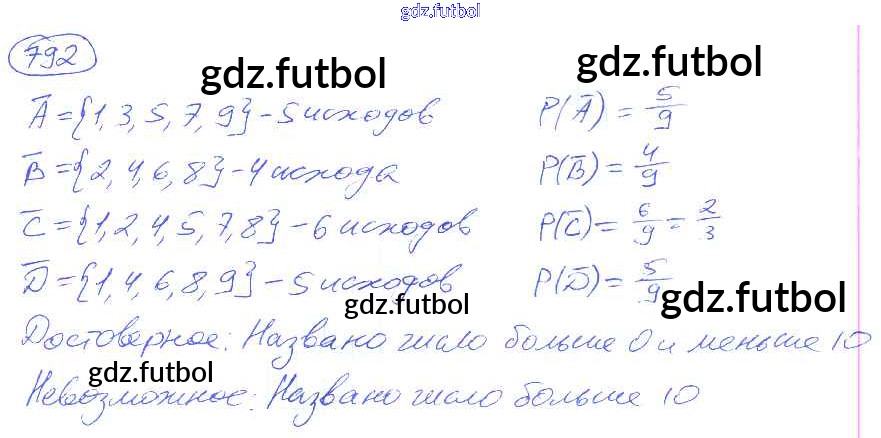 gdz.futbol
792
gdz.futbol gdz.futbol
A̅ = {1, 3, 5, 7, 9} - 5 исходов P(A̅) = 5/9
B̅ = {2, 4, 6, 8} - 4 исхода P(B̅) = 4/9
C̅ = {1, 2, 4, 5, 7, 8} - 6 исходов P(C̅) = 6/9 = 2/3
D̅ = {1, 4, 6, 8, 9} - 5 исходов P(D̅) = 5/9
gdz.futbol gdz.futbol
Достоверное: Названо число больше 0 и меньше 10
gdz.futbol
Невозможное: Названо число больше 10